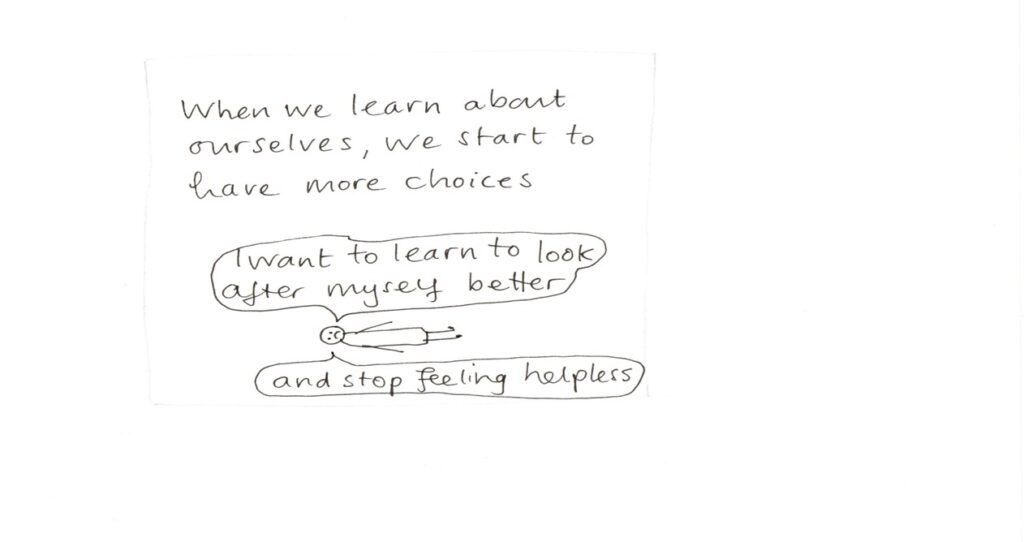 When we learn about
ourselves, we start to
have more choices
I want to learn to look
after myself better
and stop feeling helpless